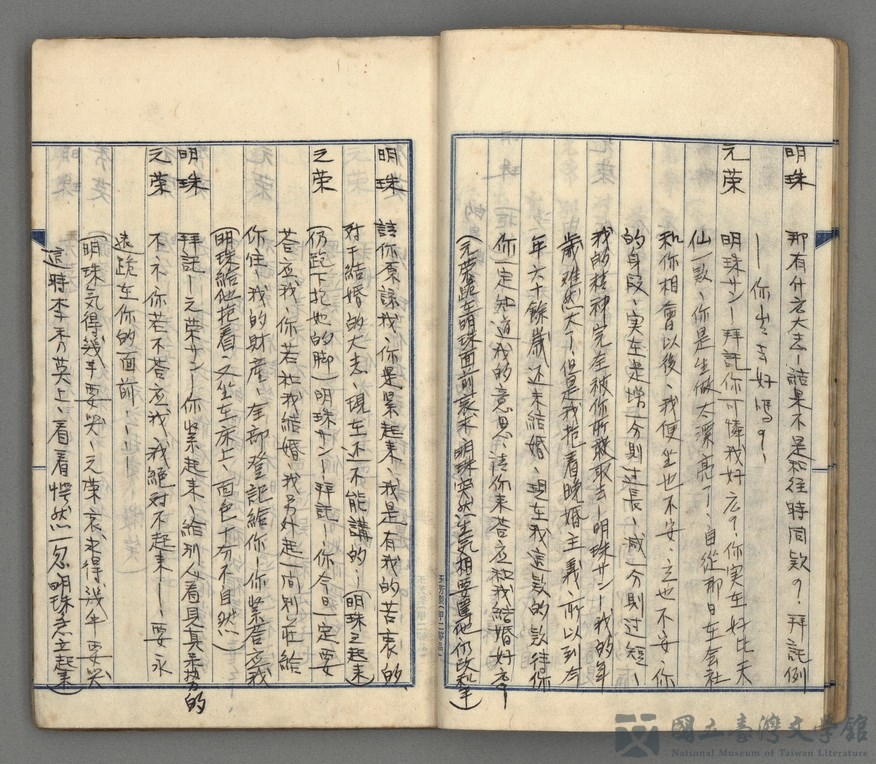 明珠 那有什広大志ー結果不是和往時同款？、拜託例
ー你出去好嗎？ー
元荣 明珠サンー拜託你可憐我好広？、你実在好比天
仙一款、你是生做太漂亮了、自從那日在会社
和你相會以後、我便坐也不安、立也不安、你
的身段、実在是增一分則过長、減一分則过短、
我的精神完全被你所敢取去ー明珠サンー我的年
歲雖然大了、但是我抱着晚婚主義、所以到今
年六十餘歲还未結婚、現在我這款的款待你
你一定知道我的意思、請你来荅应和我結婚好広？
(元荣跪在明珠面前哀求 明珠突然生気想要罵他仍改和平)
明珠 請你原諒我、你是緊起来、我是有我的苦衷的、
対于結婚的大志、現在还不能講的、(明珠立起来)
元荣 (仍跪下抱她的脚)明珠サンー拜託ー你今日一定要
荅应我、你若和我結婚、我另外起一间別庄給
你住、我的財產、全部登記給你ー你緊荅应我
(明珠給他抱着、又坐在床上、面色十分不自然)
明珠 拜託ー元荣サンー你緊起来、給別人看見真歹势的
元荣 不、不、你若不荅应我、我絕対不起来ー要永
遠跪在你的面前……ー
(明珠気得幾乎要哭、元荣哀求得幾乎要哭
這時李秀英上、看着愕然一忽 明珠急立起来)
國立臺灣文學館
National Museum of Taiwan Literature